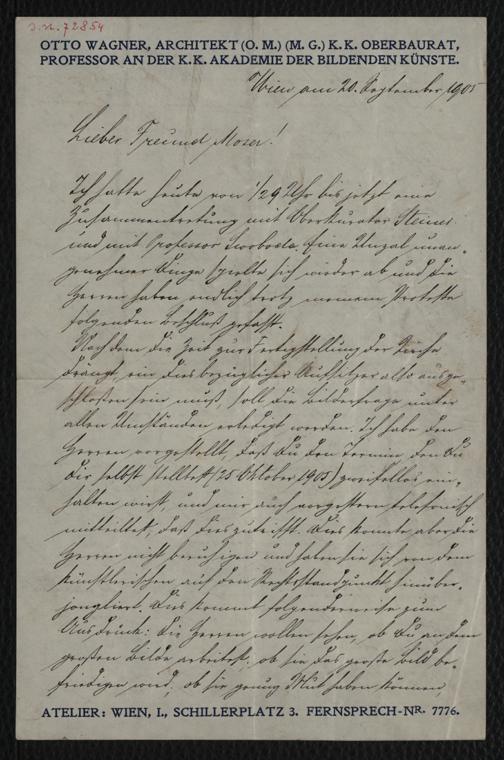 J. N. 72854
OTTO WAGNER, ARCHITEKT (O. M.) (M. G.) K. K. OBERBAURAT,
PROFESSOR AN DER K.K. AKADEMIE DER BILDENDEN KÜNSTE.
Wien am 20. September 1905
Lieber Freund Moser!
Ich hatte heute von 1/2 9 Uhr bis jetzt eine
Zusammentretung mit Oberkurator Steiner
und mit Professor Swoboda. Eine Unzal unan-
genehmer Dinge spielte sich wieder ab und die
Herren haben endlich trotz meinem Proteste
folgenden Beschluß gefaßt.
Nachdem die Zeit zur Fertigstellung der Kirche
drängt, ein diesbezüglicher Aufsitzer also ausge-
schloßen sein muß, soll die Bilderfrage unter
allen Umständen erledigt werden. Ich habe den
Herren vorgestellt, daß Du den Termin, den Du
Dir selbst stelltest (25. Oktober 1905) zweifellos ein-
halten wirst, und mir auch vorgestern telefonisch
mitteiltest, daß dies zutrifft. Dies konnte aber die
Herren nicht beruhigen und haben sie sich von dem
künstlerischen auf den Rechtsstandpunkt hinüber-
jongliert. Dies kommt folgenderweise zum
Ausdruck: Die Herren wollen sehen, ob Du an dem
großen Bilde arbeitest, ob sie das große Bild be-
friedigen wird, ob sie genug Mut haben können,
ATELIER: WIEN, I., SCHILLERPLATZ 3. FERNSPRECH-NR. 7776.